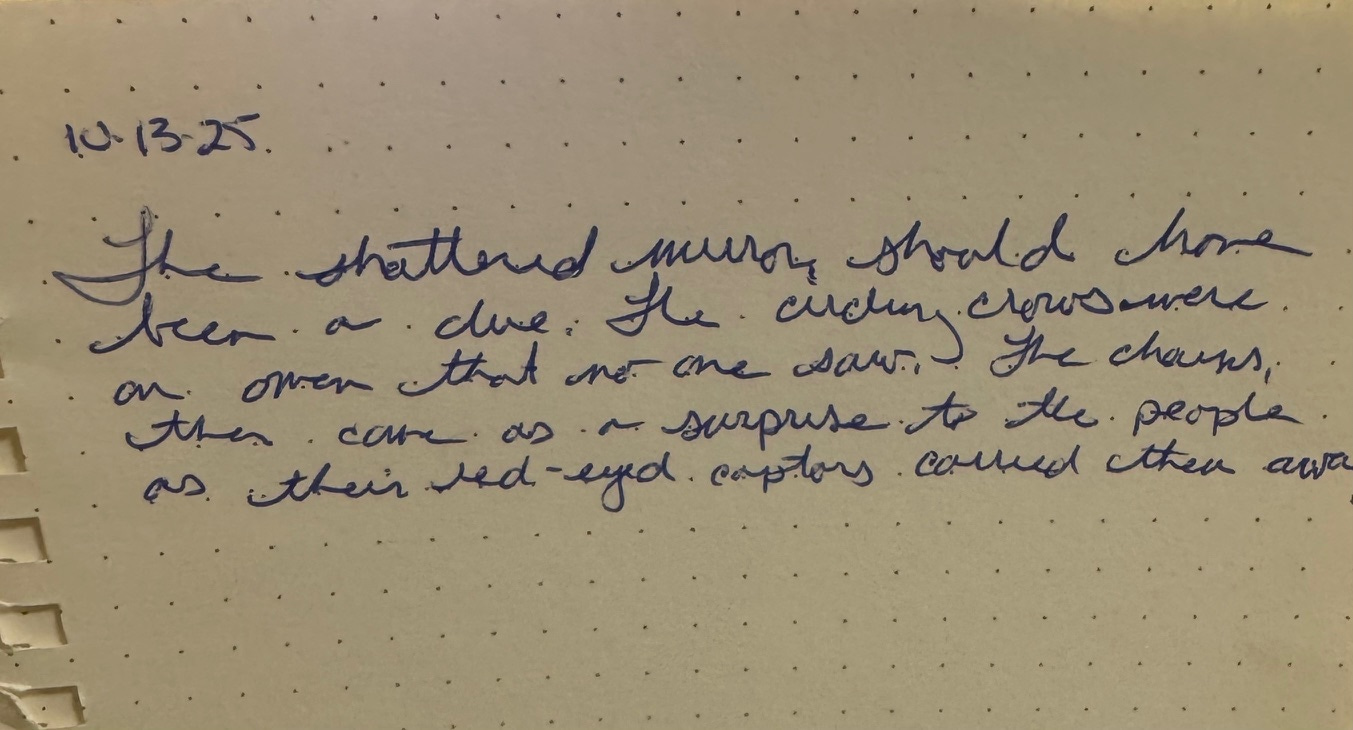 10-13-25.
The shattered mirror, should have
been a clue. The circling crows were
an omen that no one saw. The chains,
then came as a surprise to the people
as their red-eyed captors carried them awa